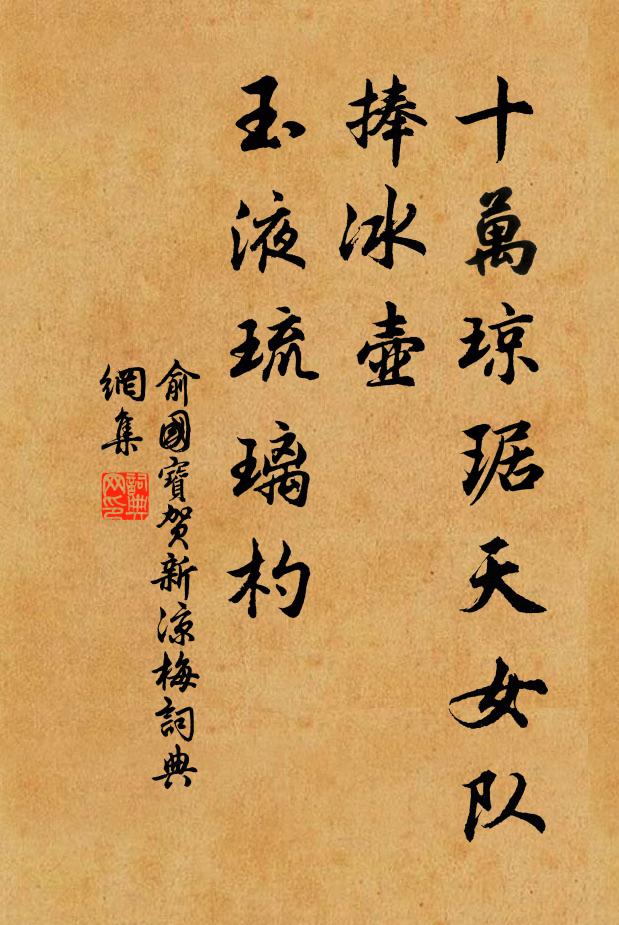 十萬琼琚天女队
捧冰壺
玉液琉璃杓
俞國寶賀新凉梅詞典
網集
詞典
网印